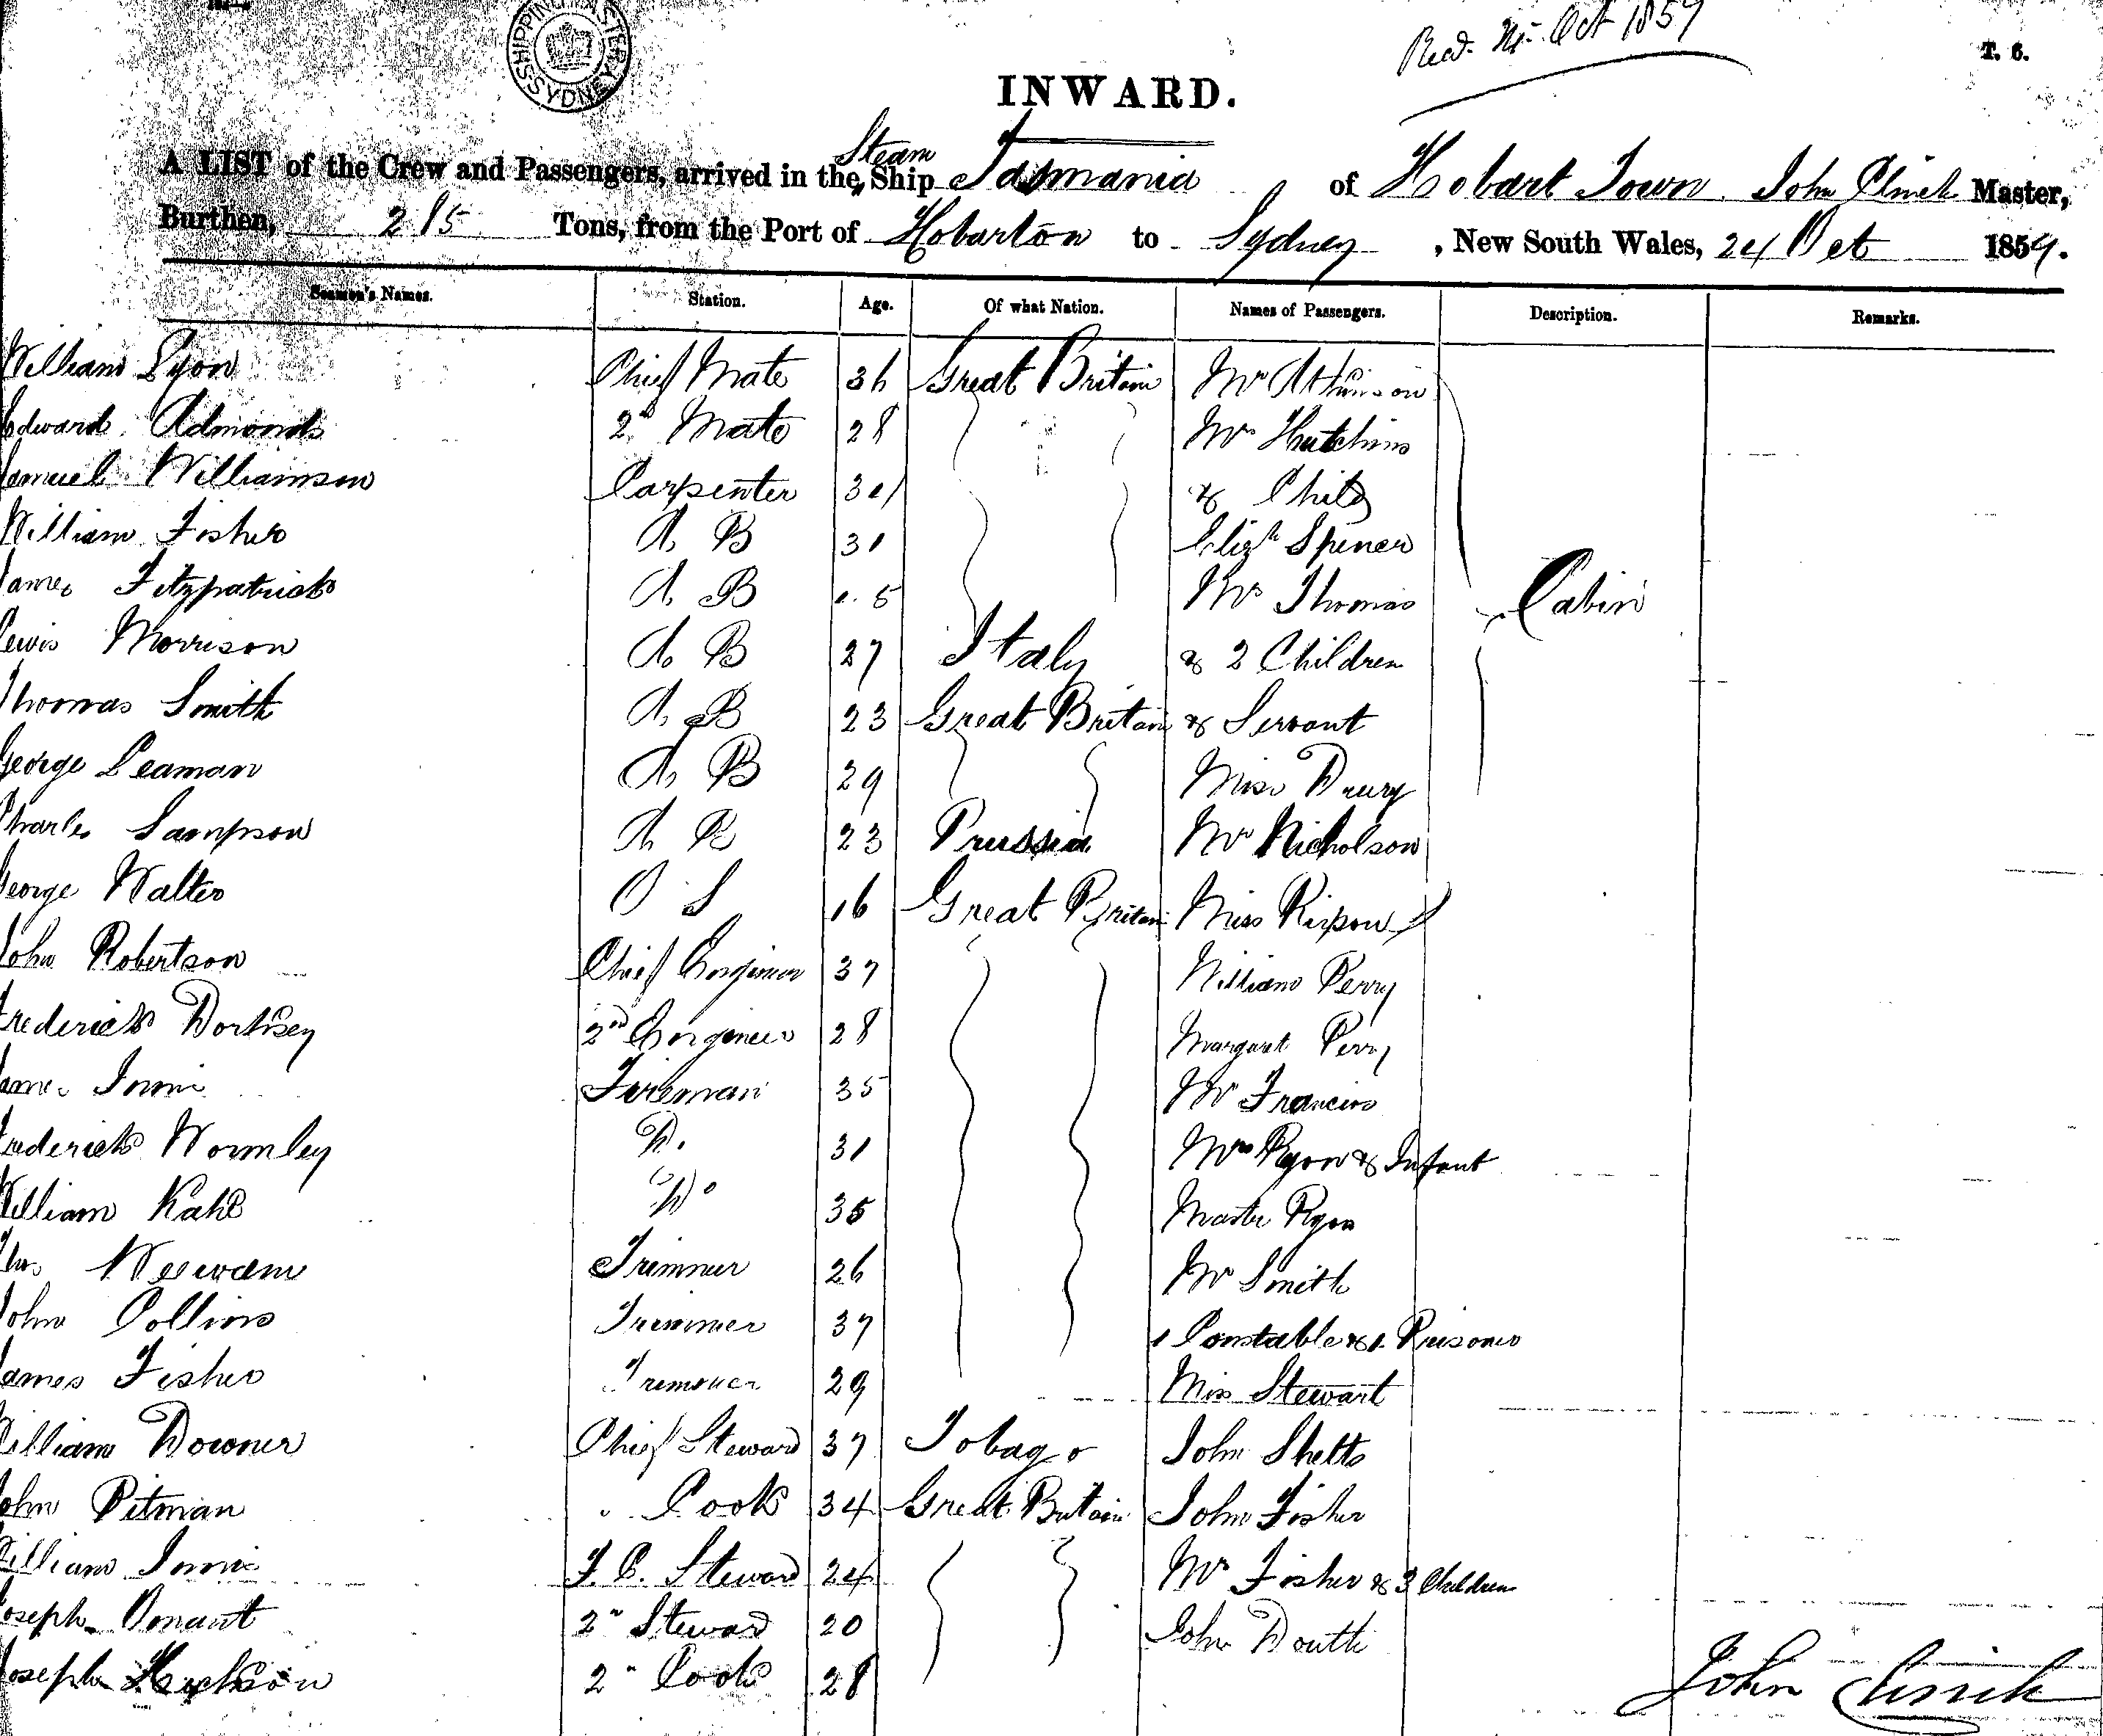 SHIPPING MASTER'S SYDNEY
Recd. Oct 1859
T. 6.
INWARD.
A LIST of the Crew and Passengers, arrived in the Steam Ship Tasmania of Hobart Town John Clinch Master,
Burthen, 215 Tons, from the Port of Hobarton to Sydney, New South Wales, 24 Oct 1859.
Seamen's Names. Station. Age. Of what Nation. Names of Passengers. Description. Remarks.
William Lyon Chief Mate 36 Great Britain Mr Atkinson
Edward Admonds 2d Mate 28 Mr Hutchins
Samuel Williamson Carpenter & Child
William Fisher A B 31 Elizh Spencer
James Fitzpatrick A B Mrs Thomas Cabin
Lewis Morrison A B 27 Italy & 2 Children
Thomas Smith A B 23 Great Britain & Servant
George Leaman A B 29 Miss Drury
Charles Sampson A B 23 Prussia Mr Nicholson
George Walter O S 16 Great Britain Miss
John Robertson Chief Engineer 37 William Perry
Frederick 2nd Engineer 28 Margaret Perry
James Fireman 35 Mr Francis
Frederick Wormley Do 31 Mrs Ryon & Infant
William Kahl Do 35 Master Ryon
Trimmer 26 Mr Smith
John Collins Trimmer 37 1 Constable & 1 Prisoner
James Fisher Trimmer 29 Miss Stewart
William Downer Chief Steward 37 Tobago John
John Pitman Cook 34 Great Britain John Fisher
William F. C. Steward 24 Mrs Fisher & 3 Children
Joseph 2d Steward 20 John
Joseph 2d Cook 28
John Clinch